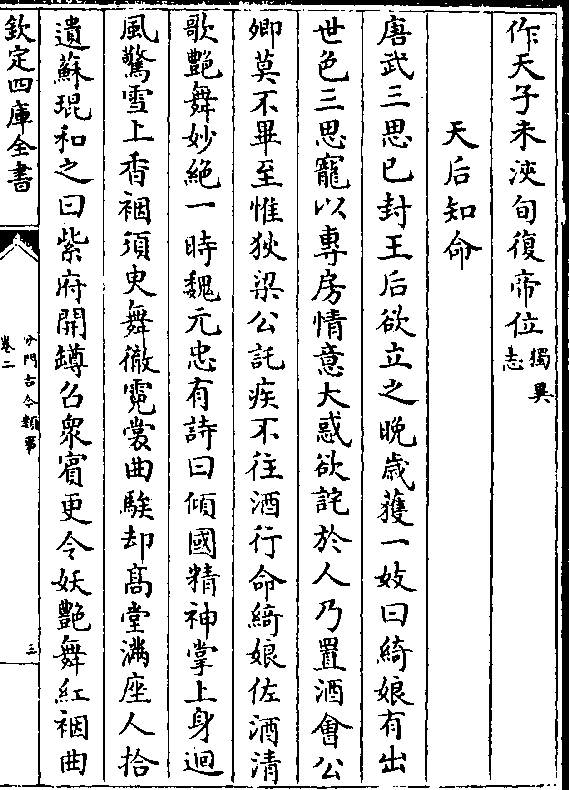 作天子未浹旬復帝位獨異志
天后知命
唐武三思已封王后欲立之晚歳獲一妓曰綺娘有出
世色三思寵以專房情意大惑欲詫於人乃置酒會公
卿莫不畢至惟狄梁公託疾不往酒行命綺娘佐酒清
歌艶舞妙絶一時魏元忠有詩曰傾國精神掌上身迴
風驚雪上香裀須臾舞徹霓裳曲騃却髙堂滿座人拾
遺蘇琨和之曰紫府開罇召衆賓更令妖艶舞紅裀曲
欽定四庫全書
分門古今類事
卷二
三